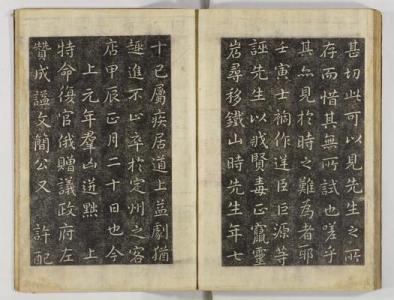 甚切此可以見先生之所
存而惜其無所試也嗟乎
其亦見於時之難為者耶
壬寅士禍作逆臣巨源等
誣先生以戕賢毒正竄靈
巖尋移鐵山時先生年七
十已屬疾居道上益劇猶
誣進不止卒於定州之客
店甲辰正月二十日也今
上元年羣凶迸黜 上
特命復官俄贈議政府左
贊成謚文簡公又 許配